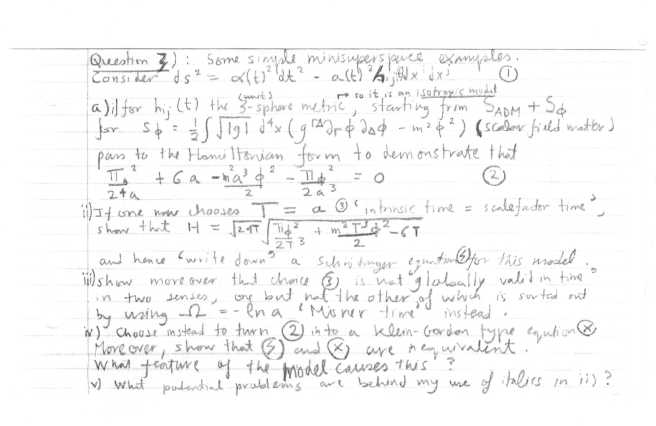 Question 3) : Some simple minisuperspace examples.
Consider ds² = α(t)²dt² - a(t)² h_ij dx^i dx^j ①
(unit) → so it is an isotropic model
a) i) for h_ij (t) the 3-sphere metric, starting from S_ADM + S_φ
for S_φ = ½ ∫ √|g| d⁴x (g^ΓΔ ∂_Γ φ ∂_Δ φ - m²φ²) (scalar field matter)
pass to the Hamiltonian form to demonstrate that
Π_a²/24a + 6a - m²a³φ²/2 - Π_φ²/2a³ = 0 ②
ii) If one now chooses T = a ③ 'intrinsic time = scalefactor time',
show that H = √24T √(Π_φ²/2T³ + m²T³φ²/2 - 6T)
and hence "write down" a Schrödinger equation ⑤ for this model.
iii) show moreover that choice ③ is not "globally valid in time"
in two senses, one but not the other of which is sorted out
by using -Ω = -ln a 'Misner time' instead.
iv) Choose instead to turn ② into a Klein-Gordon type equation ⊗
Moreover, show that ⑤ and ⊗ are inequivalent.
What feature of the model causes this ?
v) What potential problems are behind my use of italics in ii) ?